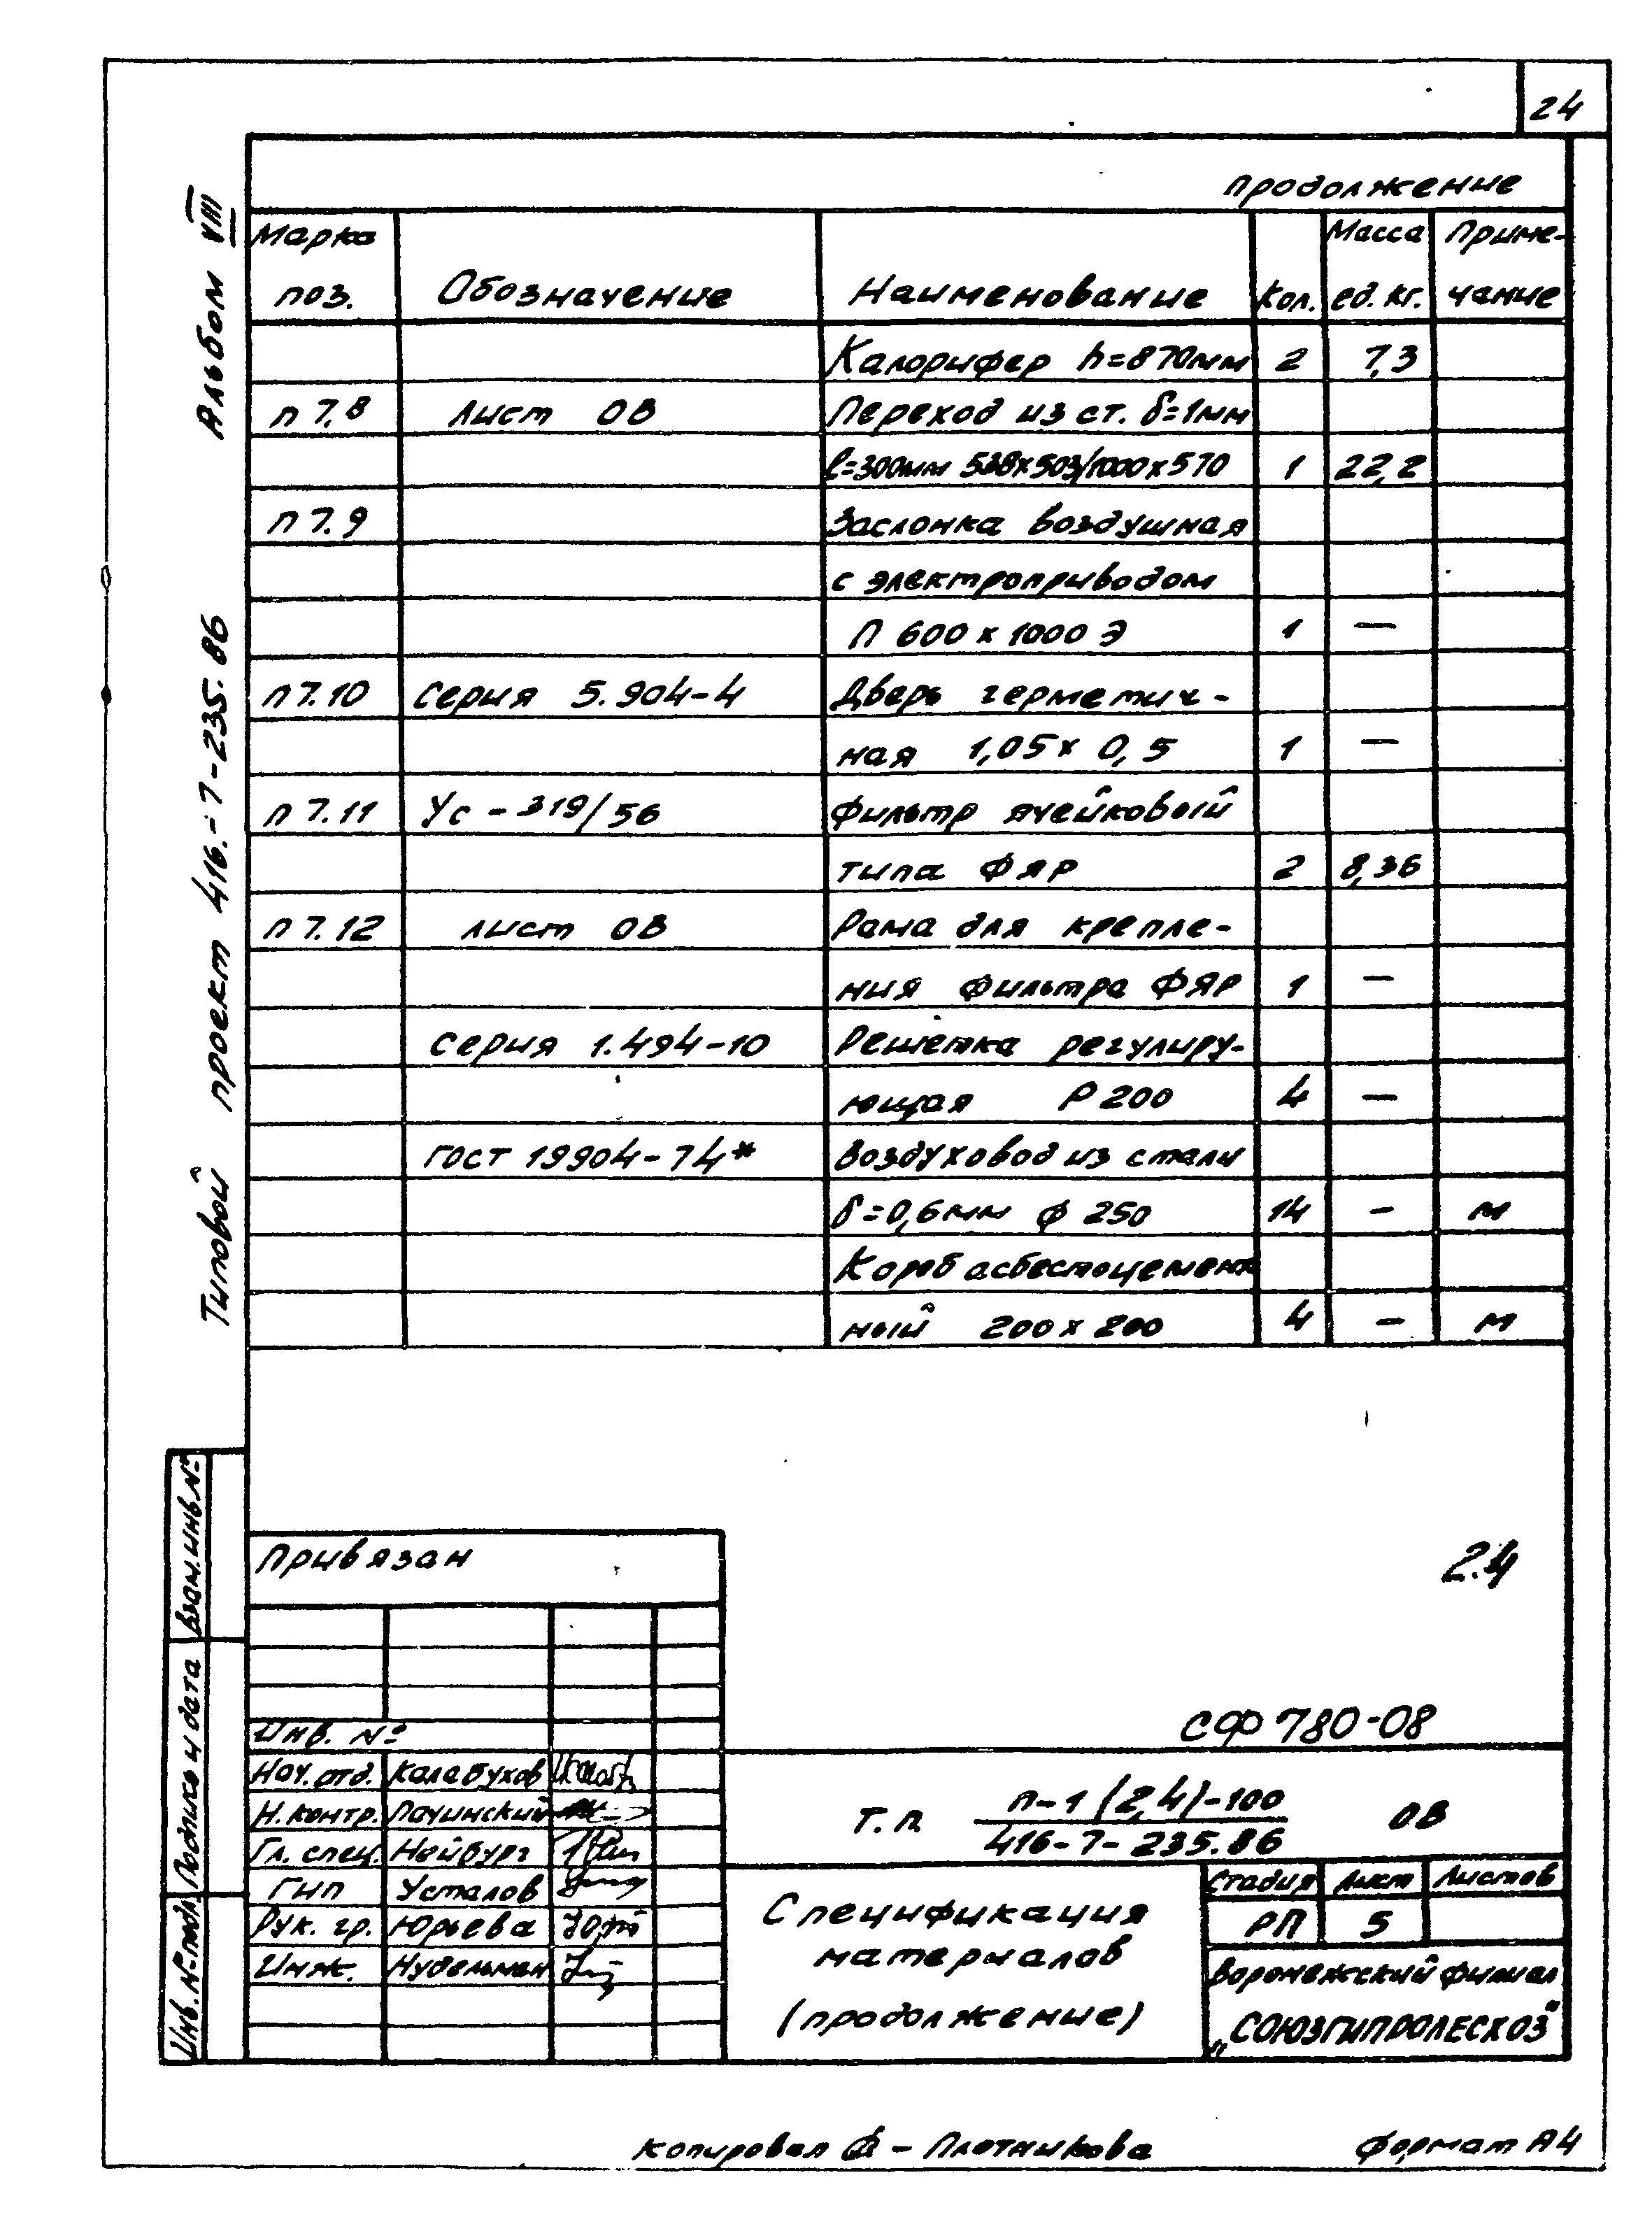 24
продолжение
Марка поз. Обозначение Наименование Кол. Масса ед. кг. Приме-чание
Калорифер h=870мм 2 7,3
п 7.8 лист ОВ Переход из ст. δ=1мм
ℓ=300мм 538х503/1000х570 1 22,2
п 7.9 Заслонка воздушная
с электроприводом
П 600 х 1000 Э 1 —
п 7.10 серия 5.904-4 Дверь герметич-
ная 1,05 х 0,5 1 —
п 7.11 Ус - 319/56 Фильтр ячейковый
типа ФЯР 2 8,36
п 7.12 лист ОВ Рама для крепле-
ния фильтра ФЯР 1 —
серия 1.494-10 Решетка регулиру-
ющая Р 200 4 —
ГОСТ 19904-74* Воздуховод из стали
δ=0,6мм ф 250 14 — м
Короб асбестоцемент
ный 200 х 200 4 — м
Альбом VIII
Типовой проект 416-7-235.86
Взам. инв. №
Подпись и дата
Инв. № подл.
Привязан
Инв. №
2.4
СФ 780-08
Нач. отд. Калабухов
Н. контр. Пачинский
Гл. спец. Нейбург
ГИП Усталов
Рук. гр. Юрьева
Инж. Нудельман
Т. п. п-1 (2,4)-100
416-7-235.86
ОВ
Спецификация
материалов
(продолжение)
Стадия Лист Листов
РП 5
Воронежский филиал
„СОЮЗГИПРОЛЕСХОЗ"
Копировал Ф - Плотникова Формат А4